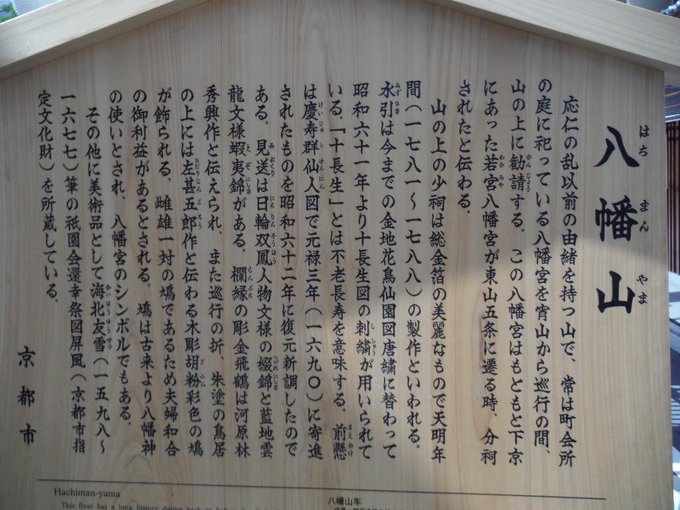 八幡山
はち まん やま
応仁の乱以前の由緒を持つ山で、常は町会所
の庭に祀っている八幡宮を宵山から巡行の間、
山の上に勧請する。この八幡宮はもともと下京
にあった若宮八幡宮が東山五条に遷る時、分祠
されたと伝わる。
山の上の少祠は総金箔の美麗なもので天明年
間(一七八一～一七八八)の製作といわれる。
水引は今までの金地花鳥仙園図唐繍に替わって
昭和六十一年より十長生図の刺繍が用いられて
いる。「十長生」とは不老長寿を意味する。前懸
は慶寿群仙人図で元禄三年(一六九〇)に寄進
されたものを昭和六十二年に復元新調したので
ある。見送は日輪双鳳人物文様の綴錦と藍地雲
龍文様蝦夷錦がある。欄縁の彫金飛鶴は河原林
秀興作と伝えられ、また巡行の折、朱塗の鳥居
の上には左甚五郎作と伝わる木彫胡粉彩色の鳩
が飾られる。雌雄一対の鳩であるため夫婦和合
の御利益があるとされる。鳩は古来より八幡神
の使いとされ、八幡宮のシンボルでもある。
その他に美術品として海北友雪(一五九八～
一六七七)筆の祇園会還幸祭図屏風(京都市指
定文化財)を所蔵している。
京都市
Hachiman-yama
This float has a long history dating back to
八幡山车